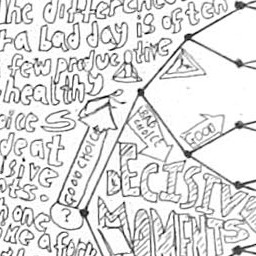 The difference
a bad day is often
few productive
healthy
ices
de at
isive
nts.
one
ke a fork
GOOD CHOICE
?
CHOICE
GOOD
DECISIVE
MOMENTS